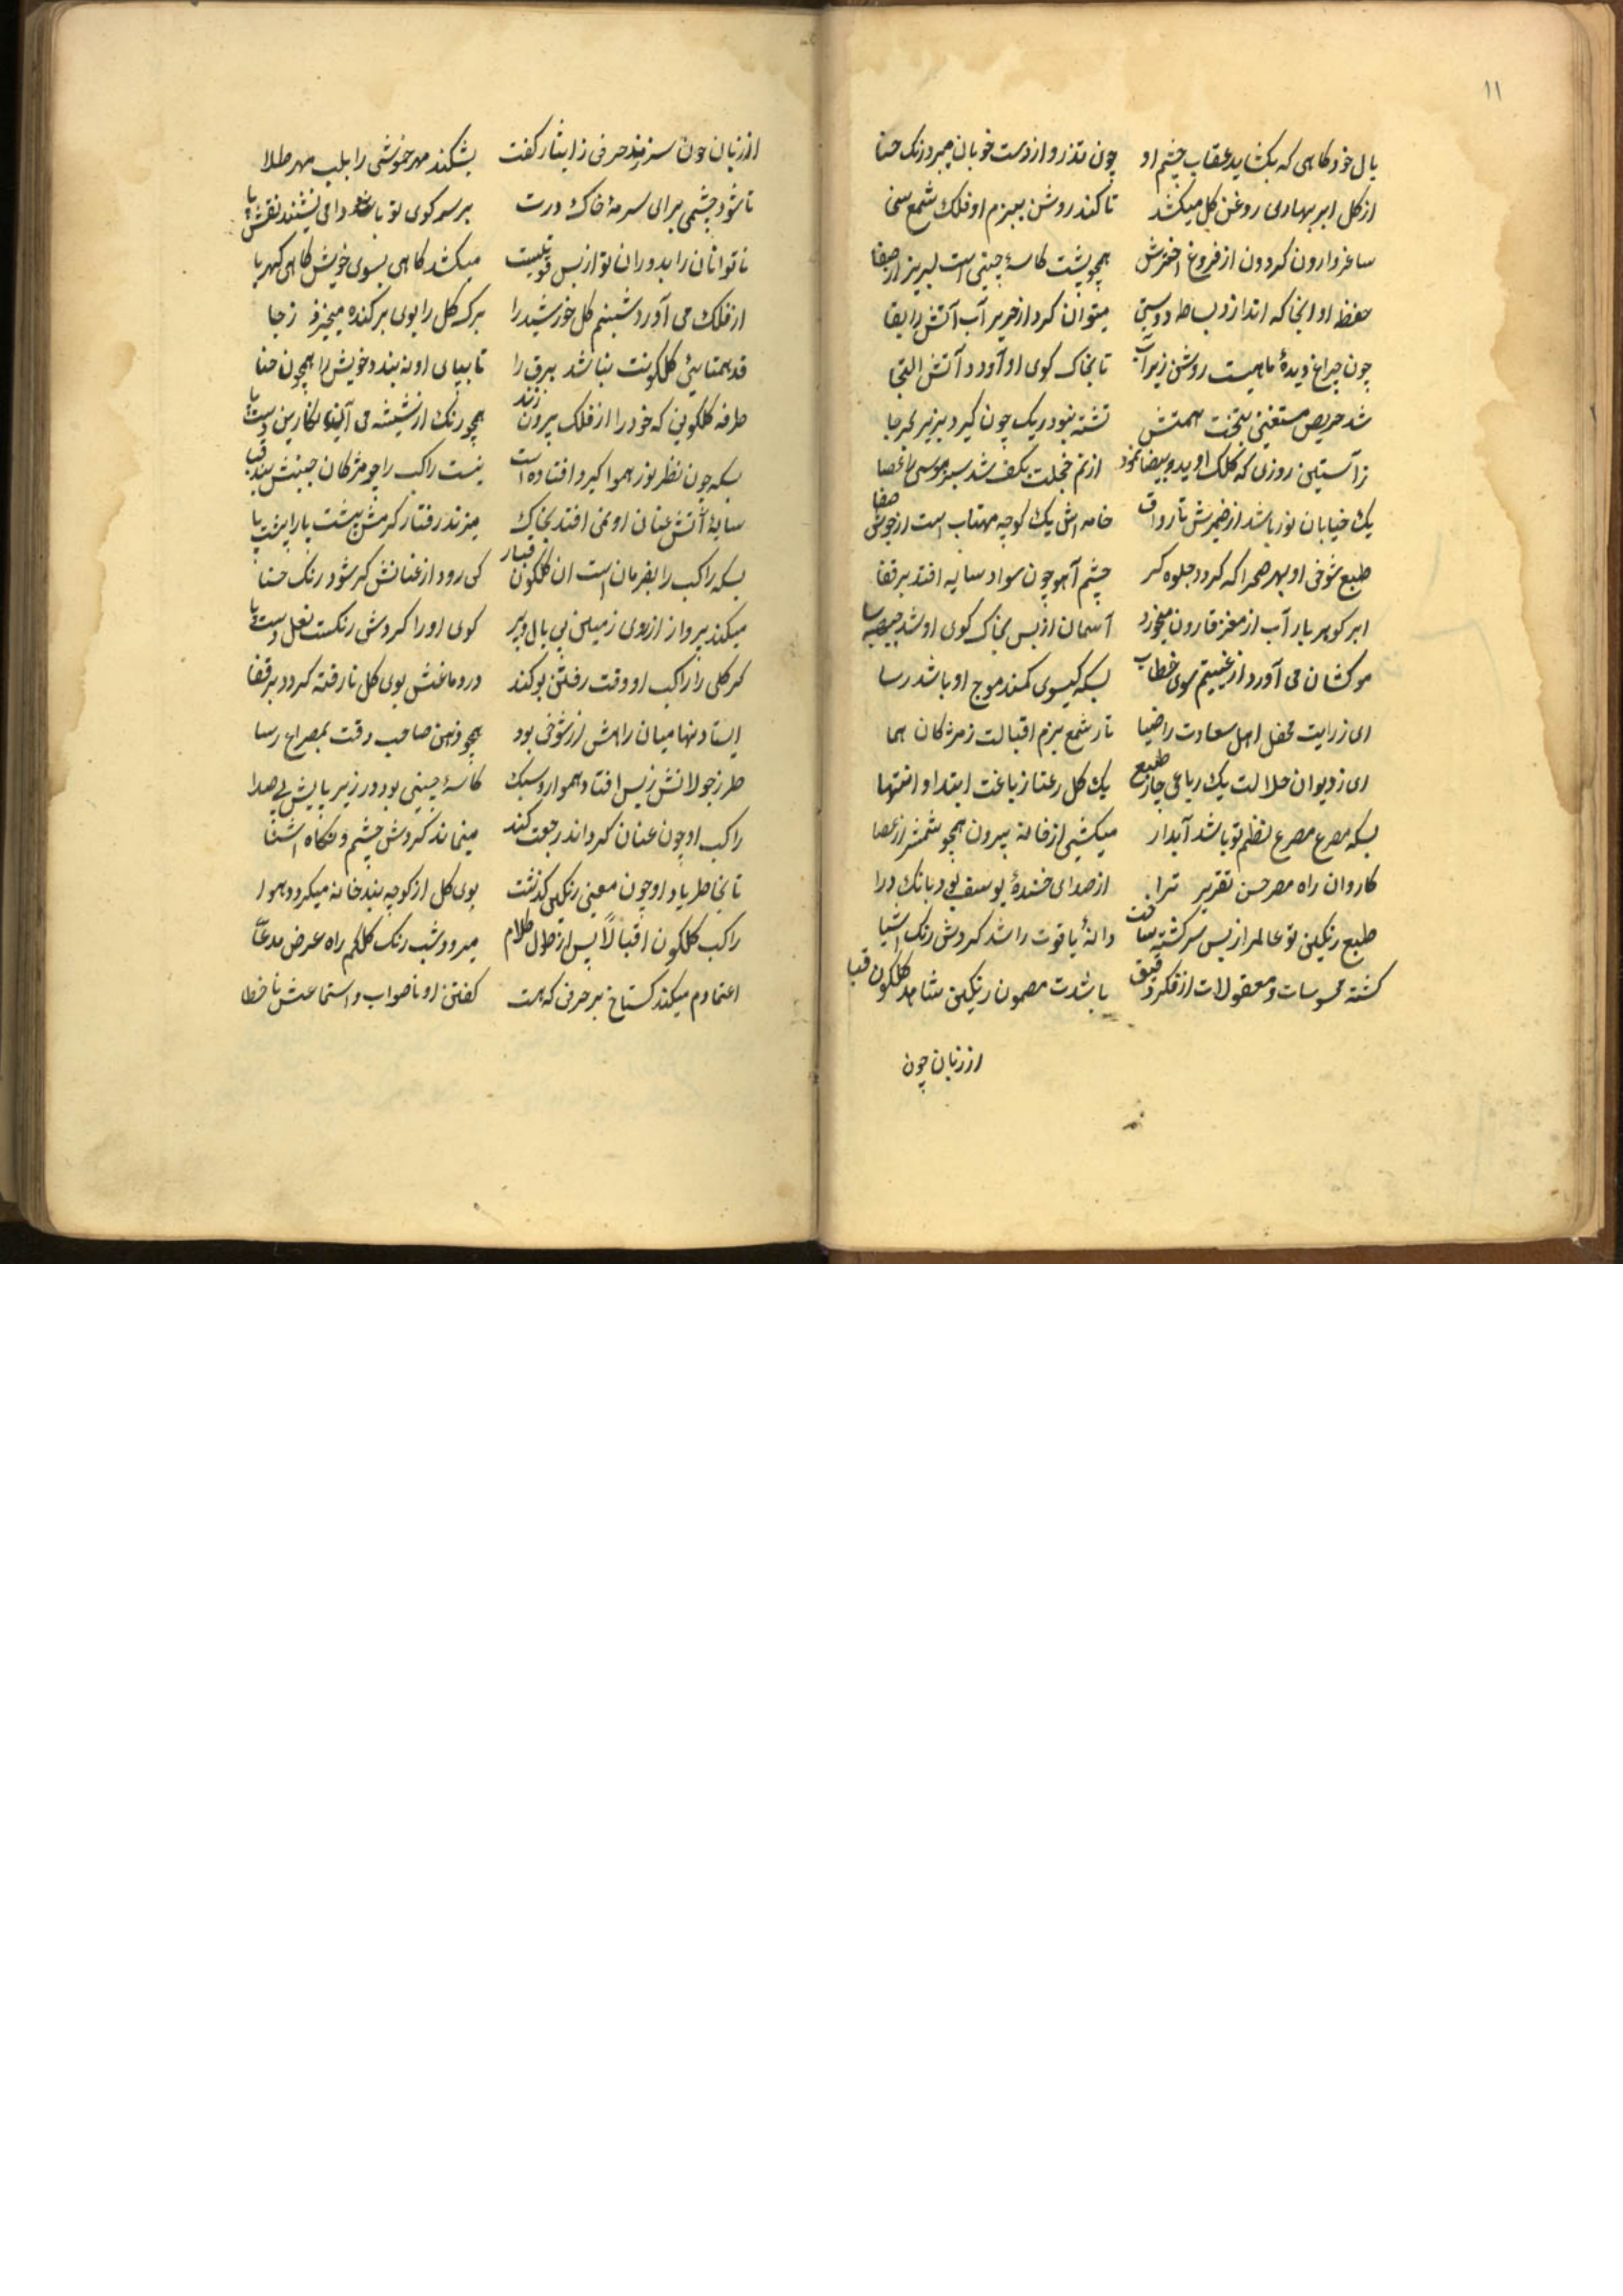 ۱۱
بال خود کاهی که بکشاید عقاب چشم او چون تذرو از دست خوبان میپرد رنک حنا
از کل ابر بهاری روغن کل میکشد تا کند روشن ببزم او فلک شمع سخا
ساغر وارون کردون از فروغ اخترش همچو پشت کاسهٔ چینی است لبریز از صفا
حفظ او انجا که اندازد بساط دوستی میتوان کرد از حریر آب آتش را بقا
چون چراغ دیدهٔ ماهیست روشن زیر آب تا بخاک کوی او آورد آتش التجا
شد حریص مستغنی تخت همتش تشنه نبود ریک چون کیرد بزیر بحر جا
ز آستین روزی که کلک او ید و بیضا نمود از نم خجلت بکف شد سبز موسی را عصا
یک خیابان نور باشد از ضمیرش تا رواق خامه اش یک کوچه مهتاب است از جوش صفا
طبع شوخی او بهر صحرا که کردد جلوه کر چشم آهو چون سواد سایه افتد بر قفا
ابر کوهر بار آب از مغز قارون میخورد آسمان از بس بخاک کوی او شد جبهه سا
موکشان می آورد از غیبتم سوی خطاب بسکه کیسوی کمند موج او باشد رسا
ای ز رایت محفل اهل سعادت را ضیا تار شمع بزم اقبالت ز مژکان هما
ای ز دیوان جلالت یک رباعی چار طبع یک کل رعنا ز باغت ابتدا و انتها
بسکه مصرع مصرع نظم تو باشد آبدار میکشی از خامه بیرون همچو شمشیر از عصا
کاروان راه مصر حسن تقریر ترا از صدای خندهٔ یوسف بود بانک درا
طبع رنکین تو عالم را ز بس سرکشته ساخت دانهٔ یاقوت را شد کردش رنک آسیا
کشته محسوسات و معقولات از فکر دقیق باشدت مضمون رنکین شاهد کلکون قبا
از زبان چون
از زبان چون سر زند حرفی ز ایثار کفت بشکند مهر خموشی را بلب مهر طلا
تا شود چشمی برای سرمهٔ خاک درت بر سر کوی تو باشد دامی نشیند نقش پا
ناتوانان را بدوران تو از بس قوتیست میکشد کاهی بسوی خویش کاهی کهربا
از فلک می آورد شبنم کل خورشید را برک کل را بوی بر کنده میخیزد ز جا
قد همتایی کلکونت نباشد برق را تا بپای او نه بندد خویش را همچون حنا
طرفه کلکونی که خود را از فلک بیرون زند همچو رنک از شیشه می آیند نکارین دست و پا
بسکه چون نظر نور هموا کیر و افتاده است نیست راکب را چو مژکان جنبش بند قبا
سایهٔ آتش عنان او نمی افتد بخاک میزند رفتار کرمش پشت پا را پشت پا
بسکه راکب را بفرمان است ان کلکون قبار کی رود از عنانش کر شود رنک حنا
میکند پرواز از روی زمین بی بال و پر کوی او را کردش رنکست نعل دست و پا
کر کلی را راکب او وقت رفتن بو کند در دماغش بوی کل نارفته کردد بر قفا
ایستادنها میان راهش از شوخی بود همچو ذهن صاحب دقت بمصراع رسا
طرز جولانش ز بس افتاد هموار و سبک کاسهٔ چینی بود در زیر پایش بی صدا
راکب او چون عنان کرداند رجعت کند مینماند کردش چشم و نکاه اشنا
تا بخاطر یاد او چون معنی رنکین کذشت بوی کل از کوچه بند خانه میکردد هوا
راکب کلکون اقبالا پس از طول کلام میرود شب رنک کلکم راه عرض مدعا
اعتمادم میکند کستاخ بر حرفی که هست کفتن او ناصواب و استماعش نا خطا